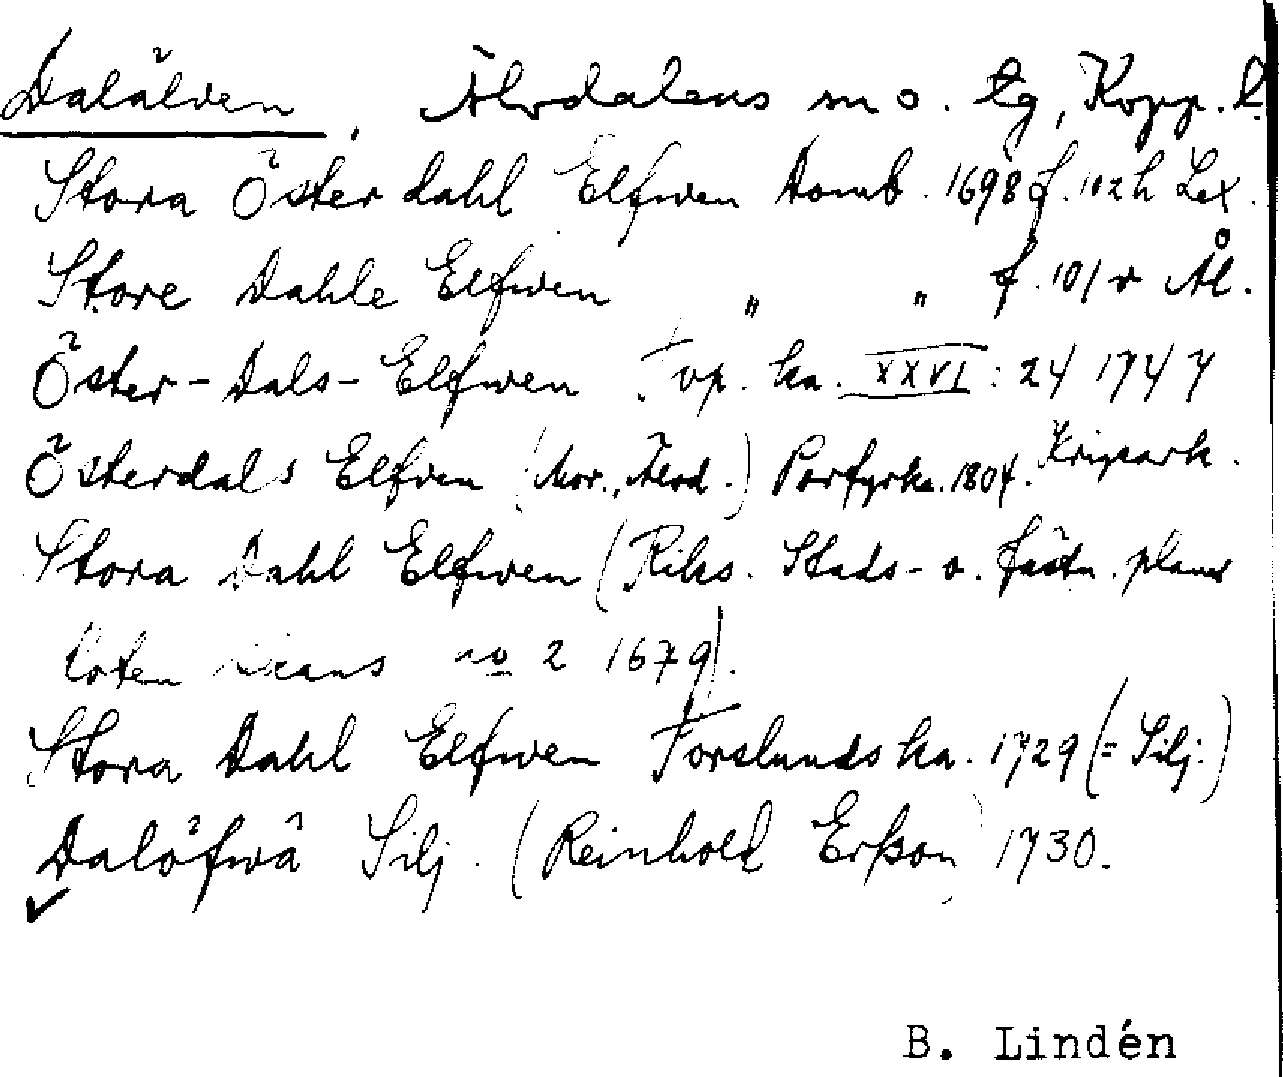 Dalälven, Älvdalens m o. tg, Kopp. l.
Stora Österdahl Elfwen Domb. 1698 f. 102 h Lex.
Store Dahle Elfwen " " f. 101 v Ål.
Öster-Dals-Elfwen Top. ka. XXVI: 24 1747
Österdals Elfven (Mor., Älvd.) Porfyrka. 1804. Krigsark.
Stora Dahl Elfwen (Riks. Stads- o. fästn. planer
Loten no 2 1679).
Stora Dahl Elfwen Forslunds ka. 1729 (= Silj.)
Dalöfwä Silj. (Reinhold Erßon) 1730.
B. Lindén